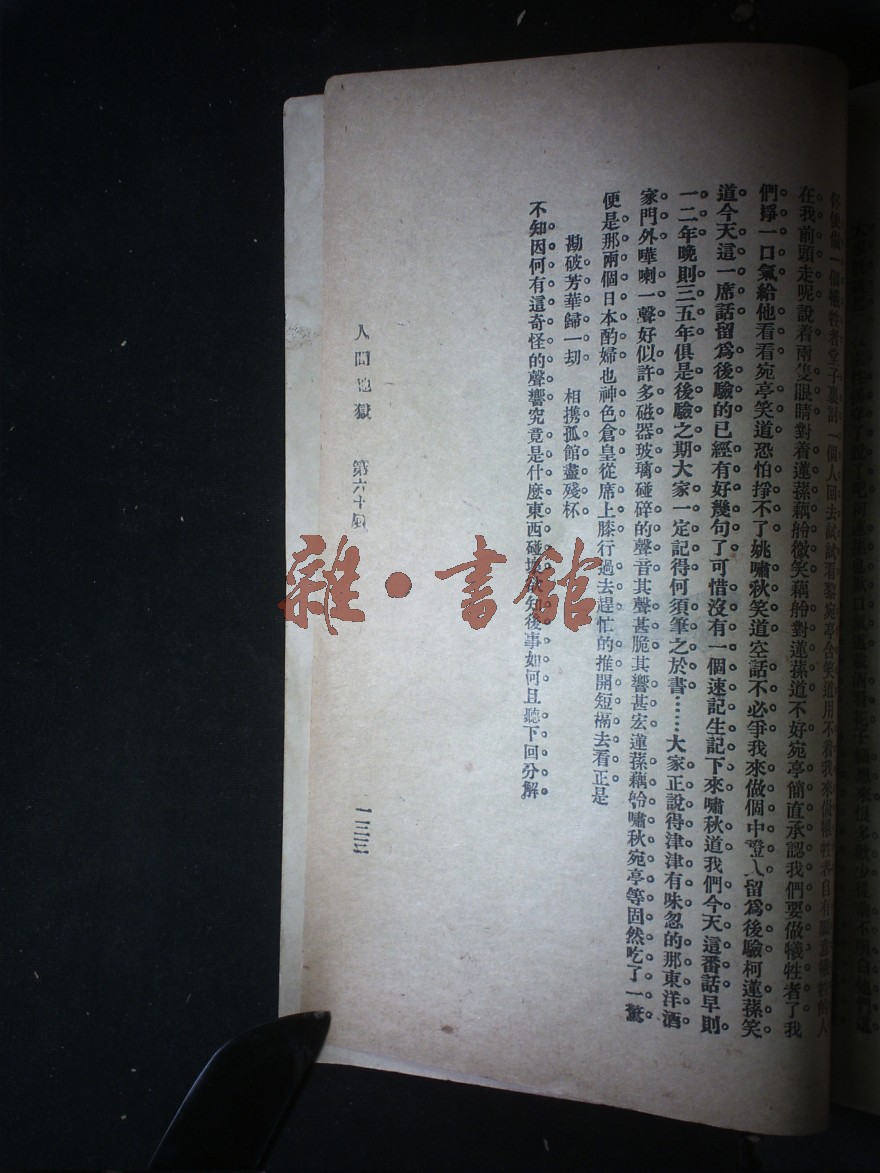 你便做一個犧牲者堂子裏討一個人回去試試看黎宛亭含笑道用不着我來做犧牲者自有願意犧牲的人
在我前頭走呢說着兩隻眼睛對着蓮蓀藕舲微笑藕舲對蓮蓀道不好宛亭簡直承認我們要做犧牲者了我
們掙一口氣給他看看宛亭笑道恐怕掙不了姚嘯秋笑道空話不必爭我來做個中證人留爲後驗柯蓮蓀笑
道今天這一席話留爲後驗的已經有好幾句了可惜沒有一個速記生記下來嘯秋道我們今天這番話早則
一二年晚則三五年俱是後驗之期大家一定記得何須筆之於書……大家正說得津津有味忽的那東洋酒
家門外嘩喇一聲好似許多磁器玻璃碰碎的聲音其聲甚脆其響甚宏蓮蓀藕舲嘯秋宛亭等固然吃了一驚
便是那兩個日本酌婦也神色倉皇從席上膝行過去趕忙的推開短槅去看正是
勘破芳華歸一刧　相携孤館盡殘杯
不知因何有這奇怪的聲響究竟是什麼東西碰壞欲知後事如何且聽下回分解
人間地獄　第六十回
一三三
雜·書館